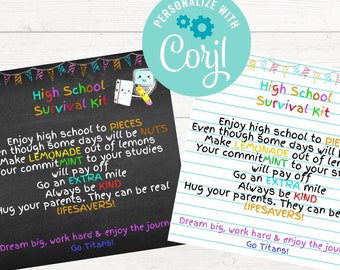 PERSONALIZE WITH
Corjl
High School
Survival Kit
Enjoy high school to PIECES
Even though some days will be NUTS
Make LEMONADE out of lemons
Your commitMINT to your studies
will pay off
Go an EXTRA mile
Always be KIND
Hug your parents. They can be real
LIFESAVERS!
Dream big, work hard & enjoy the journ
Go Titans!
High School
Survival Kit
Enjoy high school to PIECES
Even though some days will be
Make LEMONADE out of lemons
Your commitMINT to your studies
will pay off
Go an EXTRA mile
Always be KIND
Hug your parents. They can be
LIFESAVERS!
Dream big, work hard & enjoy the
Go Titans!